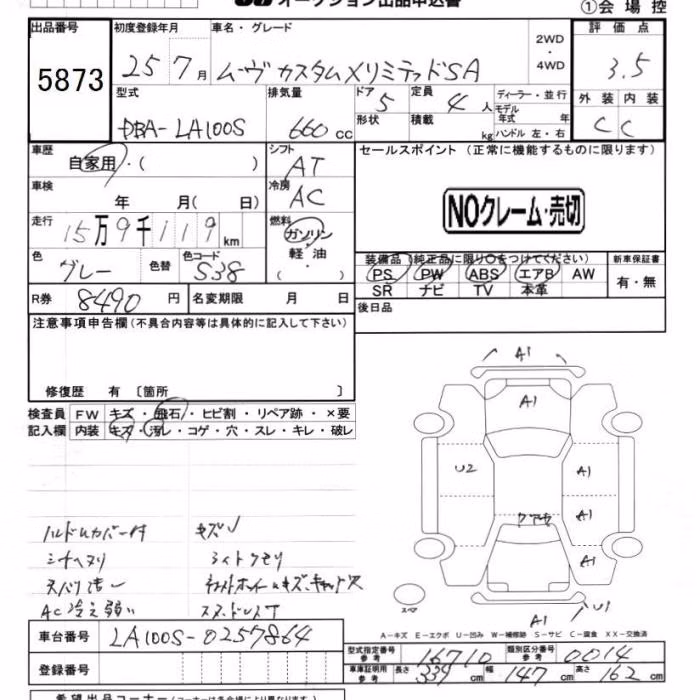 オークション出品申込書
①会場控
出品番号
5873
初度登録年月
25 7月
車名・グレード
ムーヴカスタムXリミテッドSA
2WD・4WD
評価点
3.5
外装 内装
C C
型式
DBA-LA100S
排気量
660cc
ドア 5
形状
定員 4人
積載 kg
ディーラー・並行
モデル年式 年
ハンドル 左・右
車歴
自家用・( )
シフト
AT
セールスポイント(正常に機能するものに限ります)
車検
年 月( 日)
冷房
AC
NOクレーム・売切
走行
15万9千119km
燃料
ガソリン
軽油
・( )
色
グレー
色替
色コード
S38
装備品(純正品に限り○をつけてください)
PS PW ABS エアB AW
SR ナビ TV 本革
新車保証書
有・無
R券 8490円
名変期限 月 日
後日品
注意事項申告欄(不具合内容等は具体的に記入して下さい)
修復歴 有 〔箇所 〕
検査員記入欄
FW キズ・飛石・ヒビ割・リペア跡・×要
内装 キズ・汚レ・コゲ・穴・スレ・キレ・破レ
A1
A1
U2
A1
A1
A1
A1
U1
スマ
ハンドルカバー付
キズ
ライトクモリ
AC冷え弱い
A-キズ E-エクボ U-凹み W-補修跡 S-サビ C-腐食 XX-交換済
車台番号
LA100S-0257864
登録番号
型式指定番号 参考 16710
類別区分番号 参考 0014
車庫証明用 参考 長さ 339cm 幅 147cm 高さ 162cm
希望出品コーナー